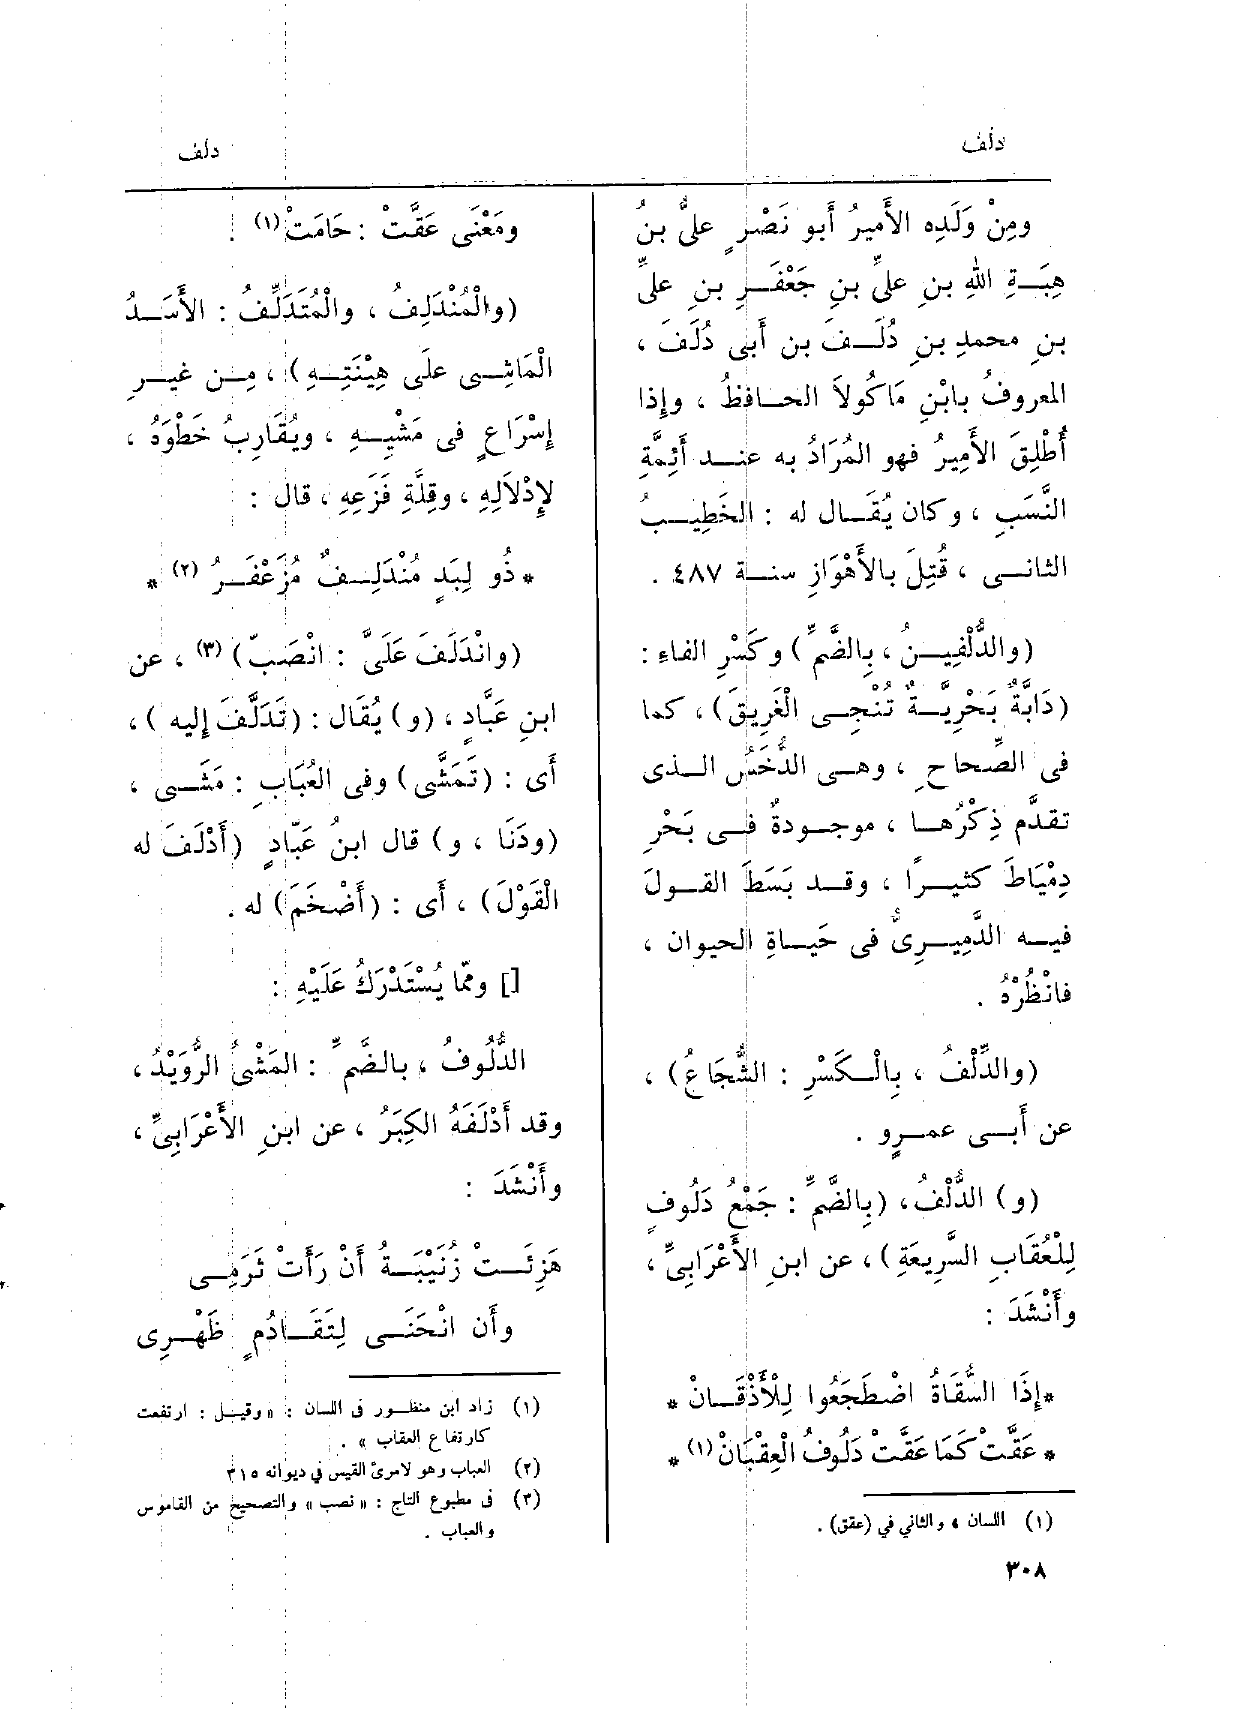 دلف
دلف
ومِنْ وَلَدِه الأَمِيرُ أَبو نَصْرٍ علىُّ بنُ
هِبَةِ اللهِ بنِ علىِّ بنِ جَعْفَرِ بنِ علىِّ
بنِ محمدِ بنِ دُلَفَ بن أَبى دُلَفَ ،
المعروفُ بابْنِ مَاكُولاَ الحافظُ ، وإِذا
أُطْلِقَ الأَمِيرُ فهو المُرَادُ به عند أَئِمَّةِ
النَّسَبِ ، وكان يُقَال له : الخَطِيبُ
الثانى ، قُتِلَ بالأَهْوَازِ سنة ٤٨٧ .
(والدُّلْفِينُ ، بِالضَّمِّ) وكَسْرِ الفاءِ :
(دَابَّةٌ بَحْرِيَّةٌ تُنْجِى الْغَرِيقَ) ، كما
فى الصِّحاحِ ، وهى الدُّخَسُ الذى
تقدَّم ذِكْرُها ، موجودةٌ فى بَحْرِ
دِمْيَاطَ كثيرًا ، وقد بَسَطَ القولَ
فيه الدَّمِيرِىُّ فى حَيَاةِ الحيوان ،
فانْظُرْهُ .
(والدِّلْفُ ، بِالْكَسْرِ : الشُّجَاعُ) ،
عن أَبى عمرٍو .
(و) الدُّلْفُ ، (بِالضَّمِّ : جَمْعُ دَلُوفٍ
لِلْعُقَابِ السَّرِيعَةِ) ، عن ابنِ الأَعْرَابِىِّ ،
وأَنْشَدَ :
*إِذَا السُّقَاةُ اضْطَجَعُوا لِلْأَذْقَانْ *
* عَقَّتْ كَمَا عَقَّتْ دَلُوفُ الْعِقْبَانْ (١) *
(١) اللسان ، والثاني في (عقق) .
٣٠٨
ومَعْنَى عَقَّتْ : حَامَتْ (١) .
(والْمُنْدَلِفُ ، والْمُتَدَلِّفُ : الأَسَدُ
الْمَاشِى علَى هِينَتِهِ) ، مِن غيرِ
إِسْرَاعٍ فى مَشْيِهِ ، ويُقَارِبُ خَطْوَهُ ،
لإِدْلاَلِهِ ، وقِلَّةِ فَزَعِهِ ، قال :
* ذُو لِبَدٍ مُنْدَلِفٌ مُزَعْفَرُ (٢) *
(وانْدَلَفَ عَلَىَّ : انْصَبّ) (٣) ، عن
ابنِ عَبَّادٍ ، (و) يُقَال : (تَدَلَّفَ إليه) ،
أَى : (تَمَشَّى) وفى العُبَابِ : مَشَى ،
(ودَنَا ، و) قال ابنُ عَبّادٍ (أَدْلَفَ له
الْقَوْلَ) ، أَى : (أَضْخَمَ) له .
[] وممّا يُسْتَدْرَكُ عَلَيْهِ :
الدُّلُوفُ ، بالضَّمِّ : المَشْىُ الرُّوَيْدُ ،
وقد أَدْلَفَهُ الكِبَرُ ، عن ابنِ الأَعْرَابِىِّ ،
وأَنْشَدَ :
هَزِئَتْ زُنَيْبَةُ أَنْ رَأَتْ ثَرَمِى
وأَن انْحَنَى لِتَقَادُمٍ ظَهْرِى
(١) زاد ابن منظور فى اللسان : « وقيل : ارتفعت
كارتفاع العقاب » .
(٢) العباب وهو لامرئ القيس في ديوانه ٣١٥
(٣) فى مطبوع التاج : « نصب » والتصحيح من القاموس
والعباب .